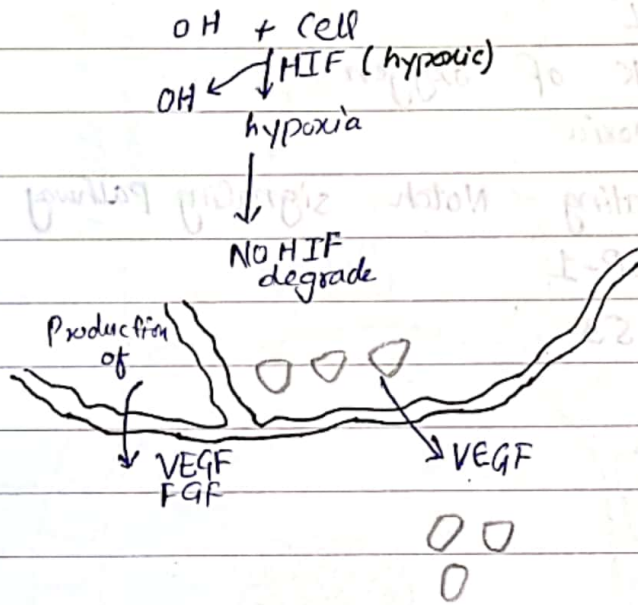 OH + Cell
HIF (hypoxic)
OH
hypoxia
NO HIF
degrade
Production
of
VEGF
FGF
VEGF